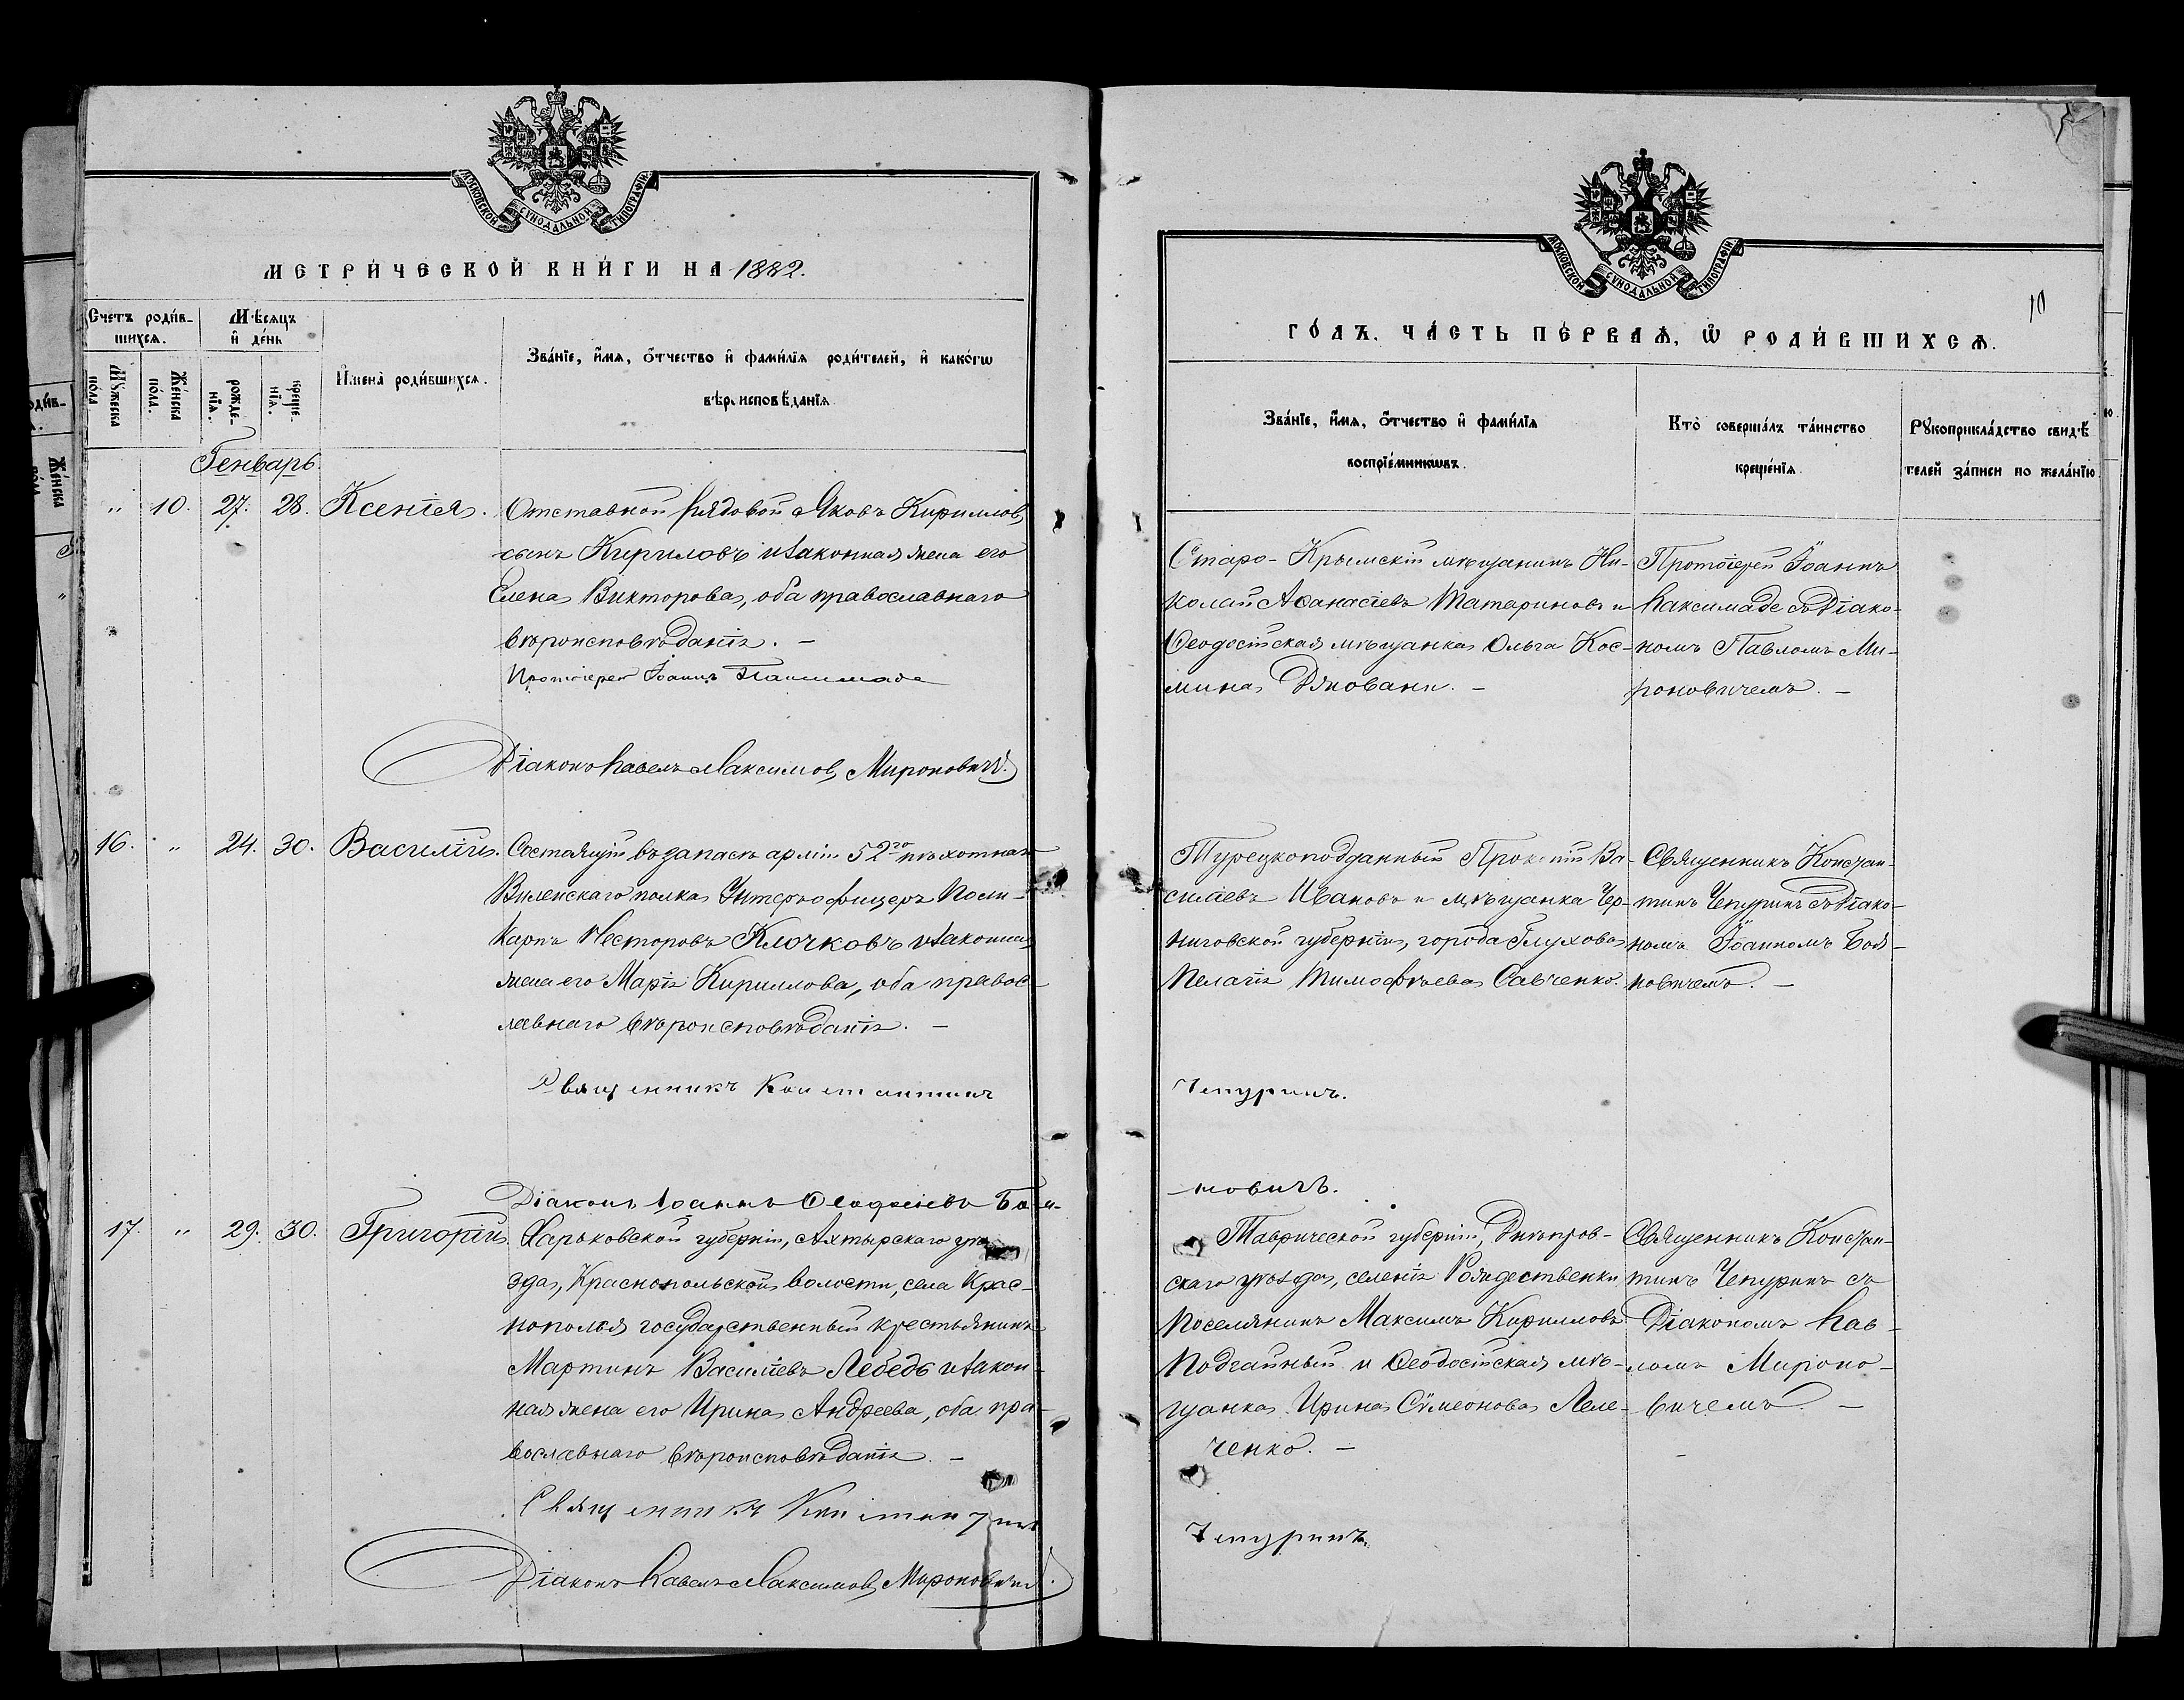 МОСКОВСКОЙ СУНОДАЛЬНОЙ ТИПОГРАФІИ
МЕТРИЧЕСКОЙ КНИГИ НА 1882.
Счетъ родив-
шихся.
Мѣсяцъ
и день
Мужеска
пола
Женска
пола.
рожде-
нія.
креще-
нія.
Имена родившихся.
Званіе, имя, отчество и фамилія родителей, и какогω
вѣроисповѣданія
Генварь.
" 10. 27. 28. Ксенія.
Отставной рядовой Яковъ Кириллов
сынъ Кириловъ и законная жена его
Елена Викторова, оба православнаго
вѣроисповѣданія. —
Протоіерей Іоаннъ
Діаконъ Павелъ Максимов Мироновичъ.
16. " 24. 30. Василій.
Состоящій въ запасѣ арміи 52го пѣхотнаго
Виленскаго полка Унтеръ офицеръ Поли-
карпъ Несторовъ Клочковъ и законная
жена его Марія Кириллова, оба правос-
лавнаго вѣроисповѣданія. —
Священникъ Константинъ
Діаконъ Іоаннъ Боя-
17. " 29. 30. Григорій.
Харьковской губерніи, Ахтырскаго уѣ-
зда, Краснопольской волости, села Крас-
нополья государственный крестьянинъ
Мартинъ Василіевъ Лебедь и закон-
ная жена его Ирина Андреева, оба пра-
вославнаго вѣроисповѣданія. —
Священникъ Константинъ
Діаконъ Павелъ Максимов Мироновичъ.
МОСКОВСКОЙ СУНОДАЛЬНОЙ ТИПОГРАФІИ
10
ГОДЪ. ЧАСТЬ ПЕРВАЯ, Ѿ РОДИВШИХСЯ.
Званіе, имя, отчество и фамилія
воспріемникωвъ.
Кто совершалъ таинство
крещенія
Рукоприкладство свидѣ
телей записи по желанію
Старо-Крымскій мѣщанинъ Ни-
колай Аѳанасіевъ Татариновъ и
Ѳеодосійская мѣщанка Ольга Кос-
мина
Протоіерей Іоаннъ
съ Діако-
номъ Павломъ Ми-
роновичемъ. —
Турецкоподданный Прокопій Ва-
силіевъ Ивановъ и мѣщанка Чер-
ниговской губерніи, города Глухова
Пелагія Тимофѣева Савченко.
Священникъ Констан-
тинъ Чепуринъ съ Діако-
номъ Іоанномъ Боя-
новичемъ. —
Чепуринъ.
новичъ.
Таврической губерніи, Днѣпров-
скаго уѣзда, селенія Рождественки
поселянинъ Максимъ Кирилловъ
Подгайный и Ѳеодосійская мѣ-
щанка Ирина Сѵмеонова Леле-
ченко. —
Священникъ Констан-
тинъ Чепуринъ съ
Діакономъ Пав-
ломъ Мироно-
вичемъ. —
Чепуринъ.